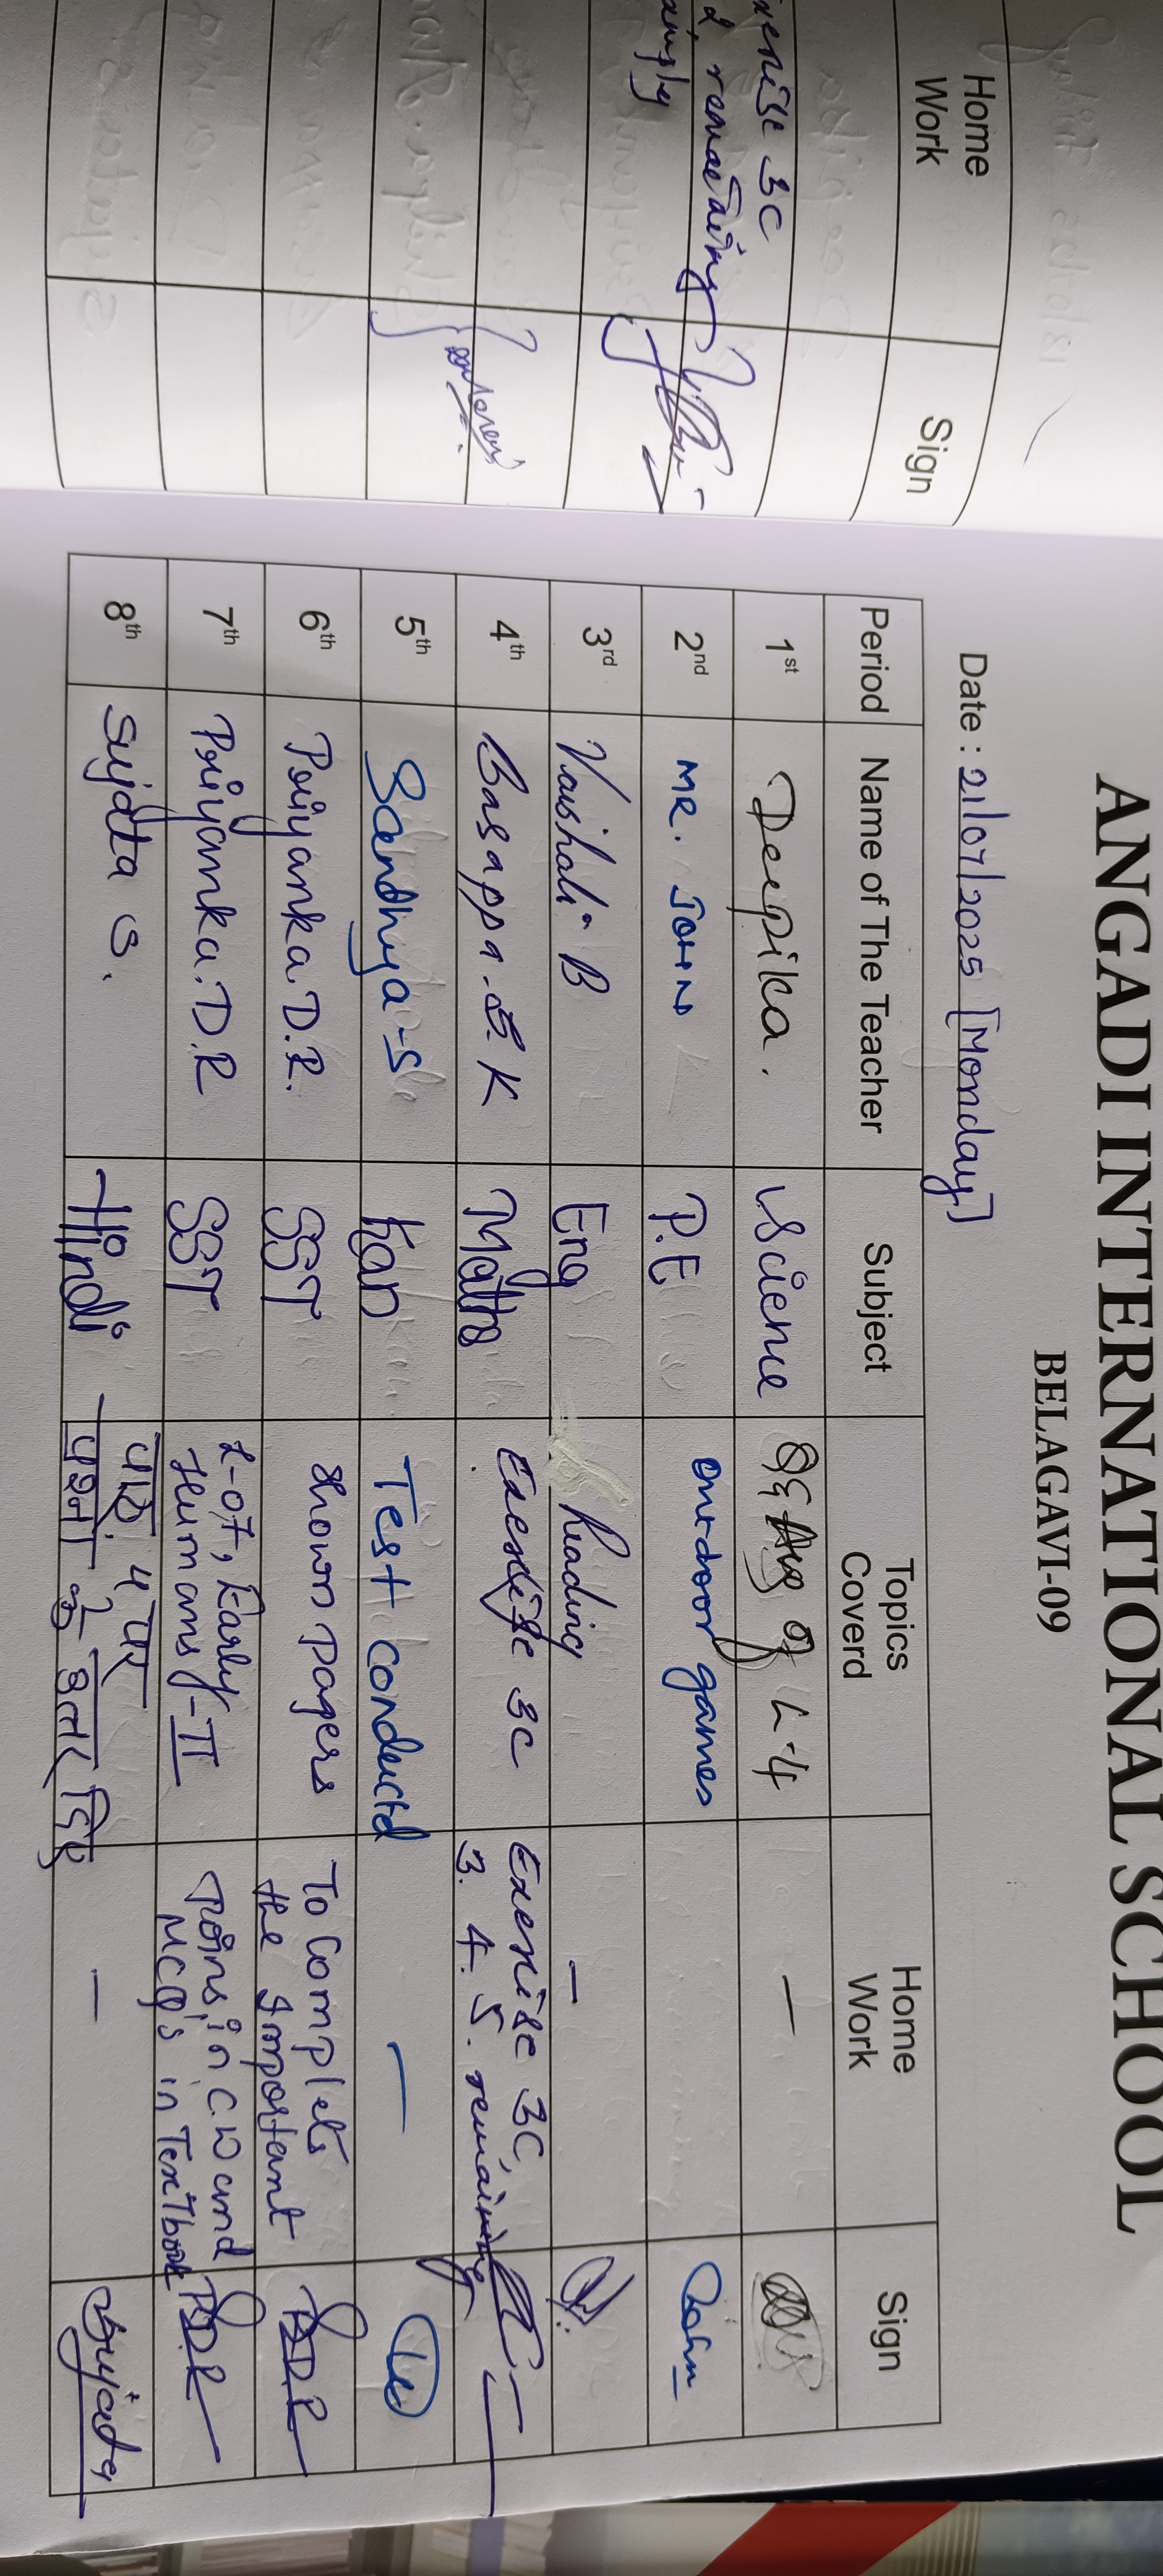 Home
Work
Sign
3C
remaining
ANGADI INTERNATIONAL SCHOOL
BELAGAVI-09
Date : 21/07/2025 [Monday]
Period Name of The Teacher Subject Topics Coverd Home Work Sign
1st Deepika. Science Q & Ans of L-4 —
2nd MR. JOHN P.E outdoor games John
3rd Vaishali B Eng Reading —
4th Basappa.S.K Maths Exercise 3C Exercise 3C, 3. 4. 5. remaining
5th Sandhya-S Kan Test conducted —
6th Priyanka.D.R. SST shown papers To Complete the important PDR
7th Priyanka.D.R SST L-07, Early Humans-II Poins, in C.W and MCQ's in TextBook PDR
8th Sujata S. Hindi पाठ 4 पर प्रश्न के उत्तर दिए — Sujata